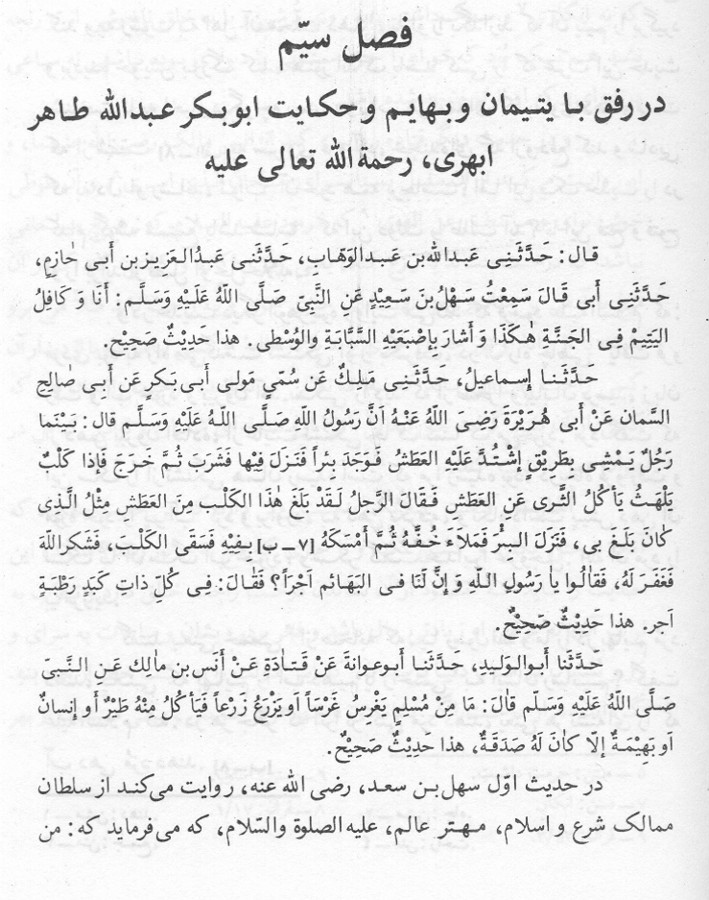 فصل سیّم
در رفق با یتیمان و بهایم و حکایت ابوبکر عبدالله طاهر
ابهری، رحمة الله تعالی علیه
قال: حَدَّثَنِی عَبدالله بن عَبدالوَهابِ، حَدَّثَنی عَبدُالعَزیز بن أَبی حٰازِم،
حَدَّثَنِی أبی قَالَ سَمِعْتُ سَهْلُ بنَ سَعِیدٍ عَنِ النَّبیّ صَلَّی اللهُ عَلَیْهِ وَسَلَّم: أَنَا وَ کَافِلُ
الیَتِیْمِ فِی الجَنَّةِ هٰکَذَا وَ أشارَ بِإصْبَعَیْهِ السَّبّابَةِ والوُسْطی. هذا حَدِیثٌ صَحِیْحٌ.
حَدَّثَنا إسماعیلُ، حَدَّثَنِی مَلِکٌ عَن سُمَیّ مَولی أبی بَکرٍ عَن أبی صٰالِح
السَّمان عَنْ أبی هُرَیْرَة رَضِیَ اللهُ عَنْهُ اَنَّ رَسُولُ اللهِ صَلَّی اللهُ عَلَیْهِ وَسَلَّم قال: بَیْنَما
رَجُلٌ یَمْشِی بِطَرِیْقٍ إشْتَدَّ عَلَیْهِ العَطَشُ فَوَجَدَ بِئراً فَنَزَلَ فِیها فَشَرَبَ ثُمَّ خَرَجَ فَإذا کَلْبٌ
یَلْهَثُ یَأکُلُ الثَّری عَنِ العَطَشِ فَقالَ الرَّجلُ لَقَدْ بَلَغَ هٰذَا الکَلْب مِنَ العَطَشِ مِثْلُ الَّذِی
کانَ بَلَغَ بی، فَنَزَلَ البِئْرَ فَمَلاَءَ خُفَّهُ ثُمَّ أَمْسَکَهُ [۷ ــ ب] بِفِیْهِ فَسَقَی الکَلْبَ، فَشَکرالله
فَغَفَرَ لَهُ، فَقٰالُوا یٰا رَسُولِ اللّهِ وَ إنَّ لَنَا فی البَهٰائم اَجْرَاً؟ فَقٰالَ: فِی کُلِّ ذٰاتِ کَبَدٍ رَطْبَةٍ
اَجر. هذا حَدِیْثٌ صَحِیْحٌ.
حَدَّثنا أبوالوَلِیدِ، حَدَّثَنا أبوعوانةَ عَنْ قَتٰادَةِ عَنْ أنَس بن مٰالِک عَنِ النَّبیَ
صَلَّی اللهُ عَلَیْهِ وَسَلّم قٰالَ: مَا مِنْ مُسْلِمٍ یَغْرِسُ غَرْساً اَو یَزْرَعُ زَرْعاً فَیَأکُلُ مِنْهُ طَیْرٌ أو إنسانٌ
اَو بَهِیْمَةٌ إلاّ کانَ لَهُ صَدَقَةٌ، هذا حَدِیْثٌ صَحِیْحٌ.
در حدیث اوّل سهل بن سعد، رضی الله عنه، روایت می‌کند از سلطان
ممالک شرع و اسلام، مهتر عالم، علیه الصلوة والسّلام، که می‌فرماید که: من